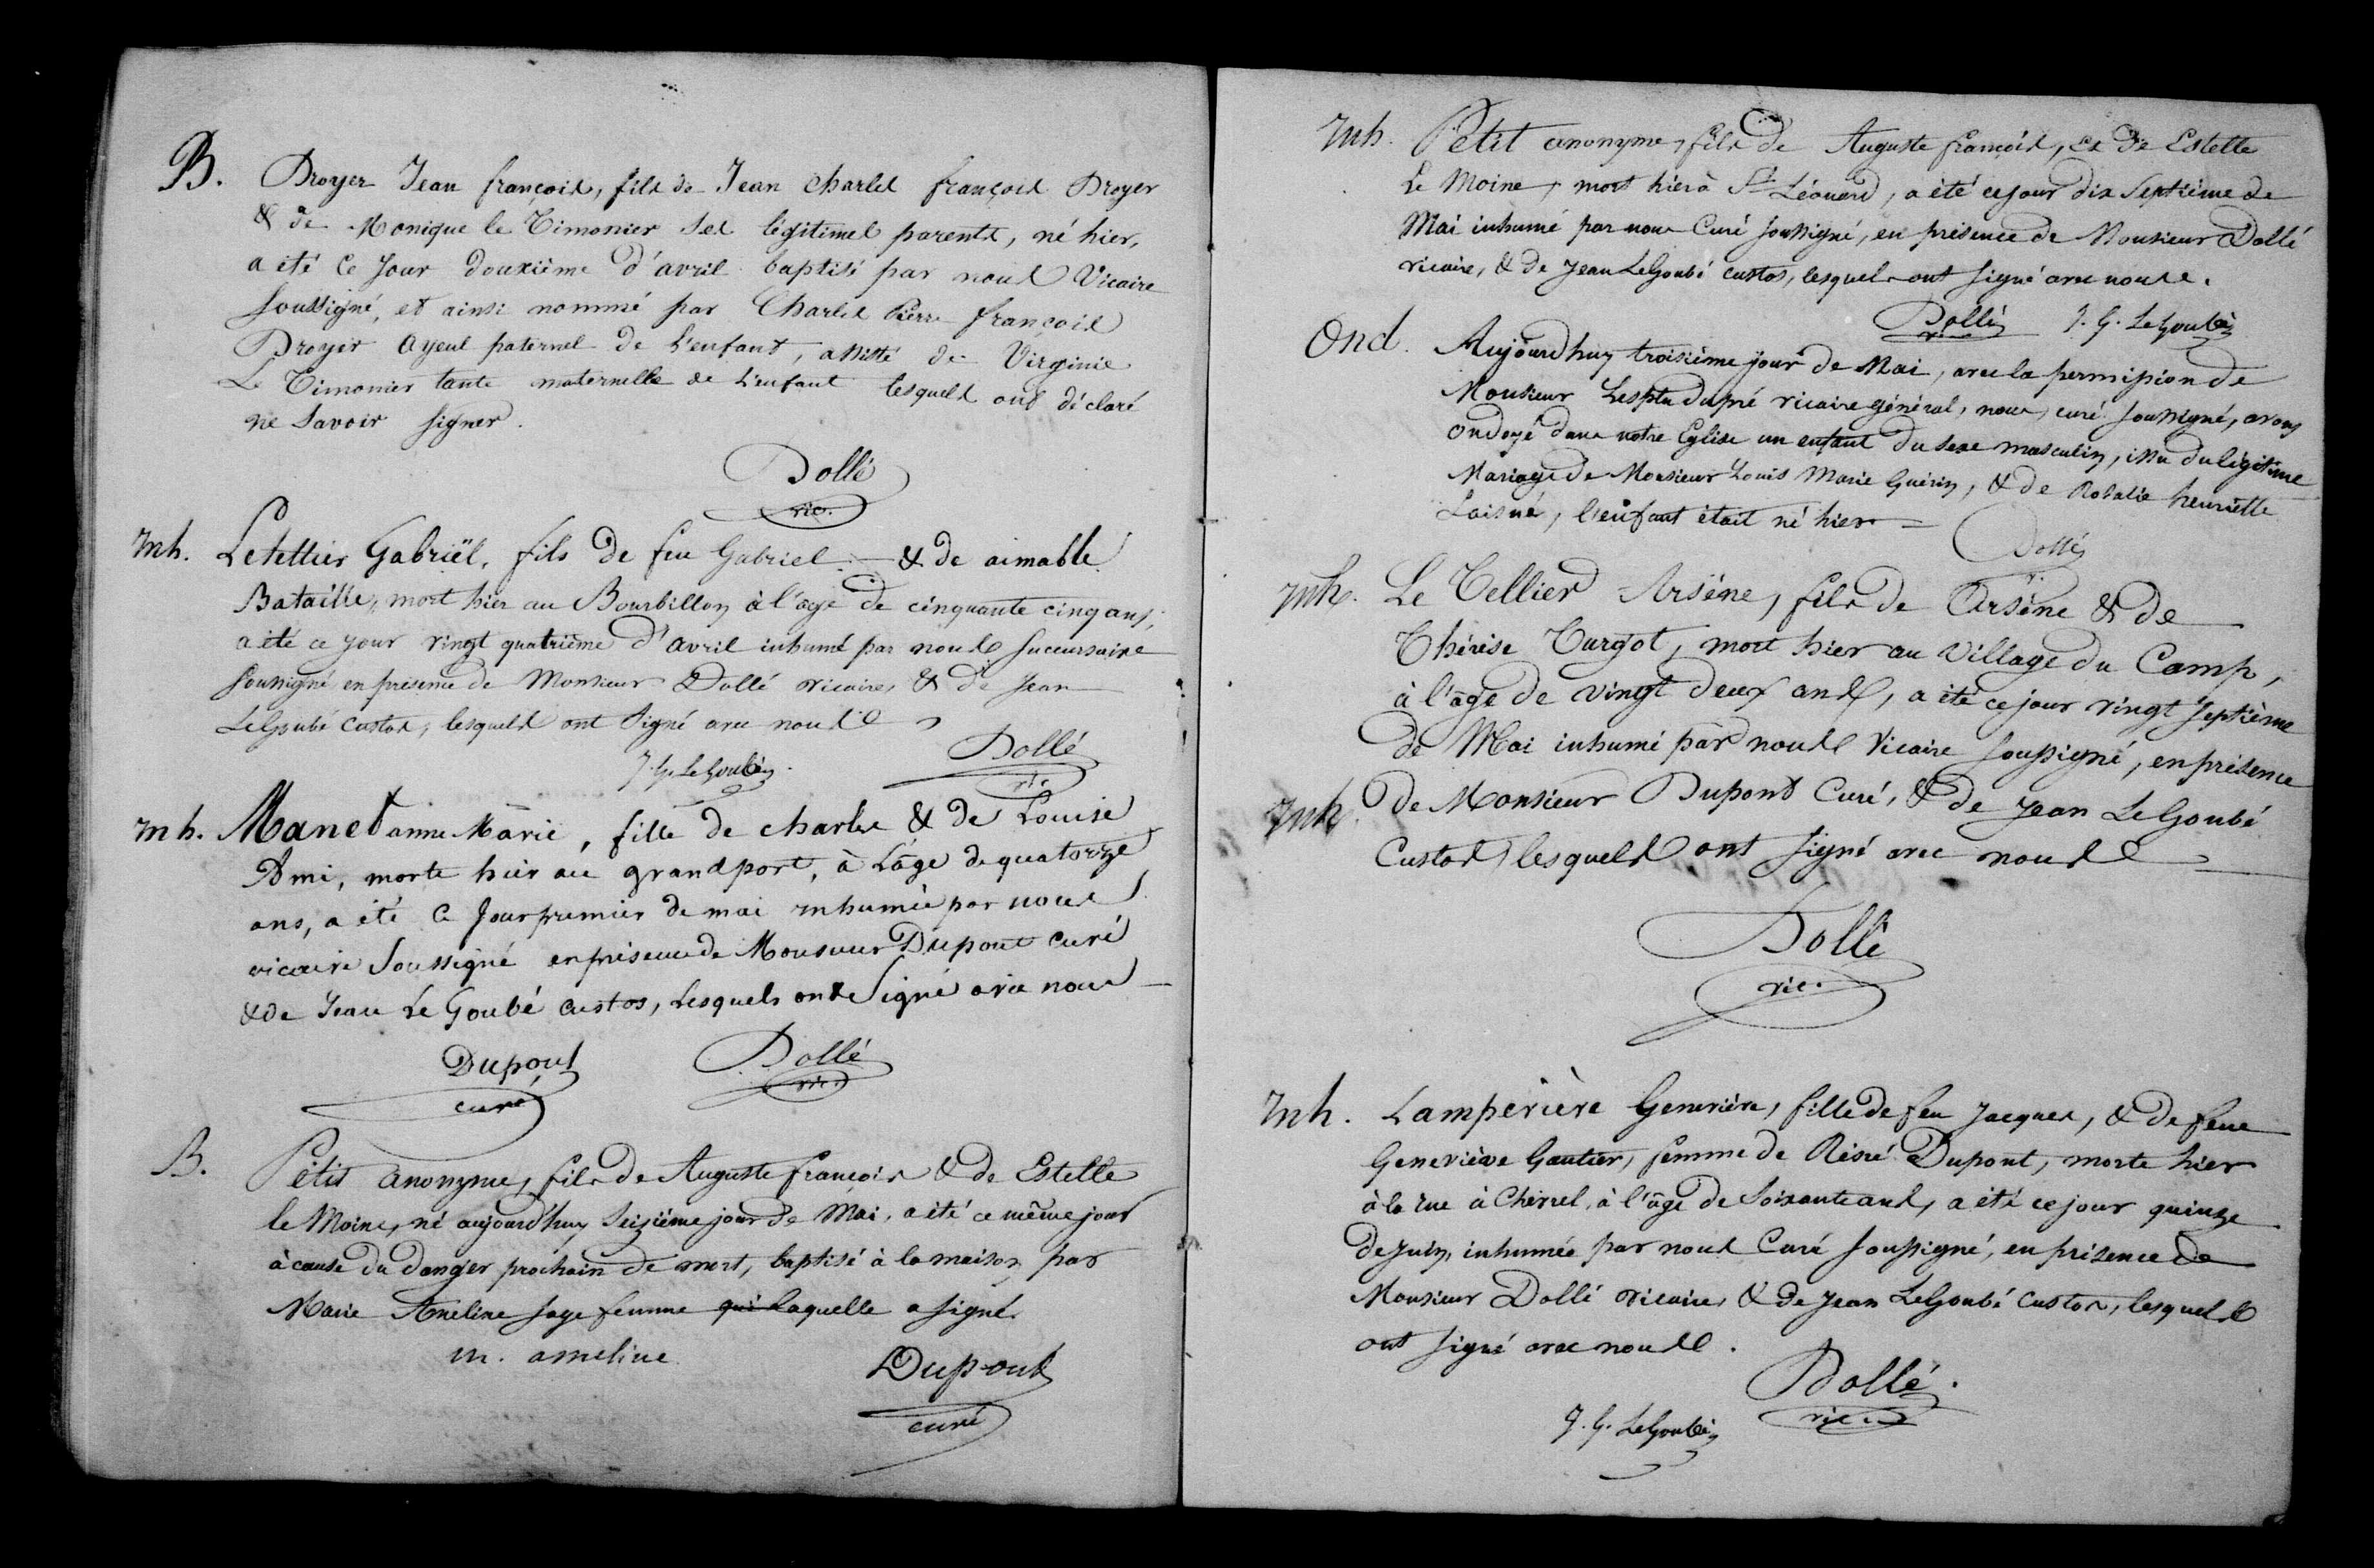 B. Droyer Jean françois, fils de Jean Charles françois Droyer
& de Monique le Timonier ses légitimes parents, né hier,
a été ce Jour douxième d'avril baptisé par nous Vicaire
soussigné, et ainsi nommé par Charles Pierre françois
Droyer ayeul paternel de l'enfant, assisté de Virginie
Le Timonier tante maternelle de l'enfant lesquels ont déclaré
ne savoir signer.
Dollé
vic.
Inh. Letellier Gabriël, fils de feu Gabriel & de aimable
Bataille, mort hier au Bourbillon à l'age de cinquante cinq ans,
a été ce jour vingt quatrième d'avril inhumé par nous succursaire
soussigné en présence de Monsieur Dollé vicaire, & de Jean
LeGoubé custos, lesquels ont signé avec nous
J. G. LeGoubey Dollé
vic
Inh. Manet anne Marie, fille de charles & de Louise
Ami, morte hier au grandport, à l'âge de quatorze
ans, a été ce Jour premier de mai inhumée par nous
vicaire soussigné en présence de Monsieur Dupont curé
& de Jean Le Goubé custos, lesquels ont signé avec nous
Dupont Dollé
curé vic.
B. Petit anonyme, fils de Auguste françois & de Estelle
le Moine, né aujourd'huy seizième jour de Mai, a été ce même jour
à cause du danger prochain de mort, baptisé à la maison par
Marie Ameline sage femme qui laquelle a signé.
m. ameline Dupont
curé
Inh. Petit anonyme, fils de Auguste françois, et de Estelle
Le Moine, mort hier à St Léonard, a été ce jour dix septième de
Mai inhumé par nous Curé soussigné, en présence de Monsieur Dollé
vicaire, & de Jean LeGoubé custos, lesquels ont signé avec nous.
Dollé J. G. LeGoubey
vic
Ond. Aujourdhuy troisième jour de Mai, avec la permission de
Monsieur Lesplu dupré vicaire général, nous, curé soussigné, avons
ondoyé dans notre Eglise un enfant du sexe masculin, issu du légitime
Mariage de Monsieur Louis Marie Guérin, & de Rosalie henriette
Laisné, l'enfant était né hier
Dollé
Inh. Le Tellier Arsène, fils de Arsène & de
Thérèse Turgot, mort hier au Village du Camp,
à l'âge de vingt deux ans, a été ce jour vingt septième
de Mai inhumé par nous Vicaire soussigné, en présence
Inh. de Monsieur Dupont Curé, & de Jean LeGoubé
Custos, lesquels ont signé avec nous
Dollé
vic.
Inh. Lampérière Geneviève, fille de feu Jacques, & de feue
Geneviève Gautier, femme de Désiré Dupont, morte hier
à la rue à Chérel, à l'âge de soixante ans, a été ce jour quinze
de Juin, inhumée par nous Curé soussigné, en présence de
Monsieur Dollé vicaire, & de Jean LeGoubé Custos, lesquels
ont signé avec nous.
Dollé.
J. G. LeGoubey vic.